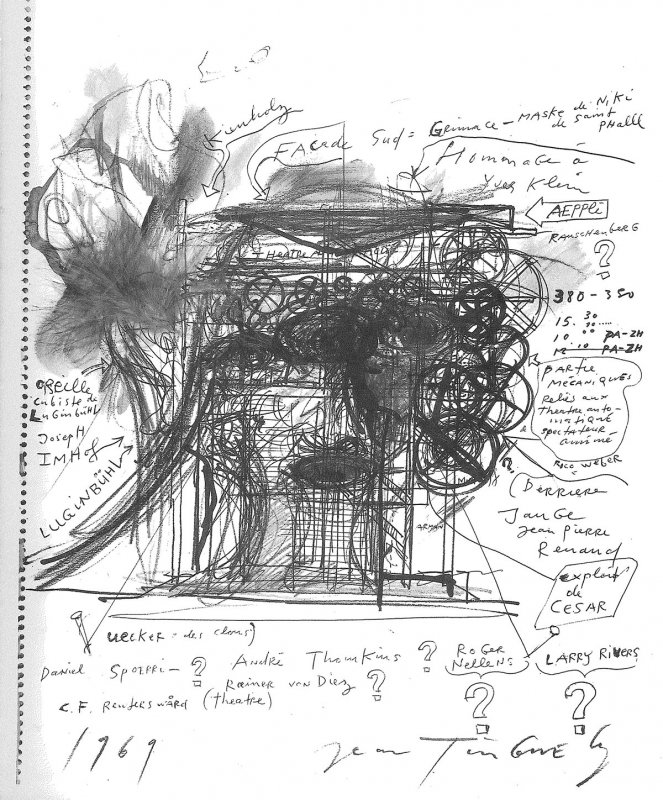 Kienholz
FAÇADE SUD = GRIMACE - MASKE de NiKi
de Saint
PHALLE
Hommage à
Yves Klein
AEPPLi
RAUSCHENBERG
?
THEATRE
380 - 350
15. 30
10 PA-ZH
12 10 PA-ZH
PARTIE
MÉCANIQUES
Reliés aux
theatre auto-
matique
spectateur
animé
RICO WEBER
OREILLE
cubiste de
LUGINBÜHL
JOSEPH
IMHOF
LUGINBÜHL
ARMAN
(DERRIERE
Jean Pierre
Renaud
exploit
de
CESAR
UECKER = des clous)
DANIEL SPOERRI - ?
ANDRÉ THOMKINS ?
ROGER
NELLENS
?
LARRY RIVERS
?
RAINER VON DIEZ ?
(theatre)
C.F. REUTERSWÄRD
1969
Jean TINGUELY